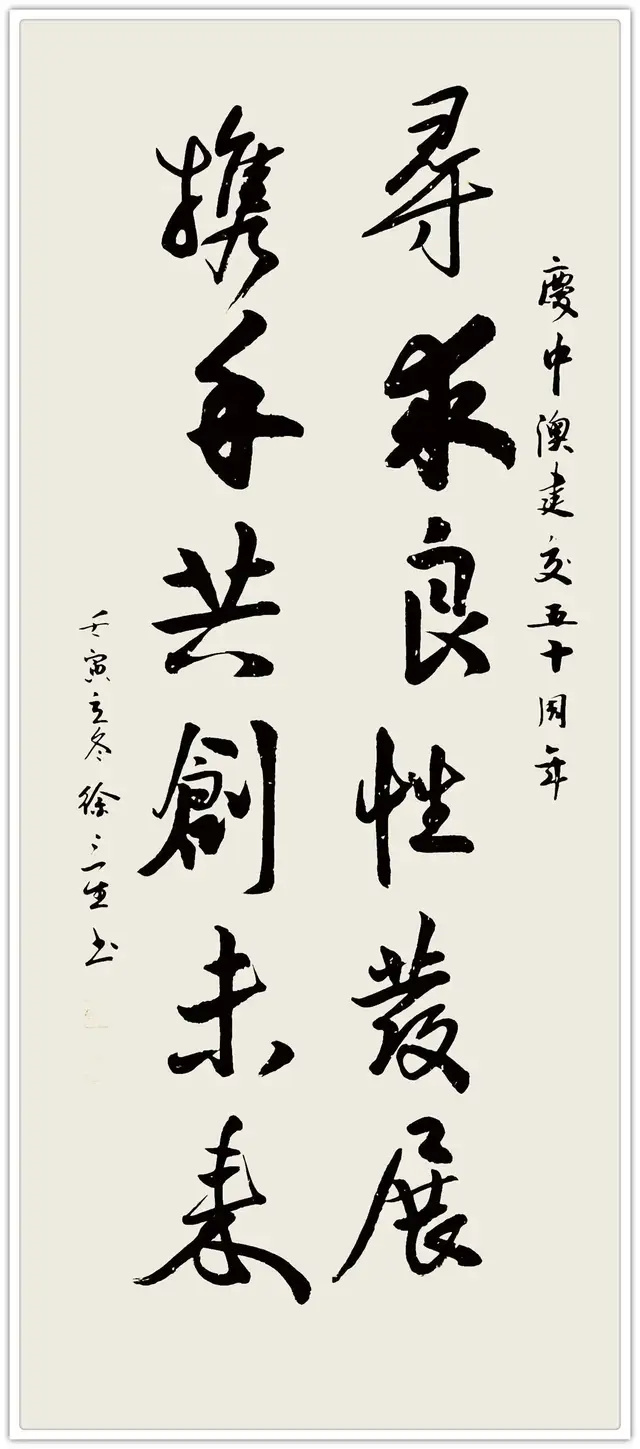 慶中澳建交五十周年
尋求良性發展
携手共創未来
壬寅立冬徐三生书